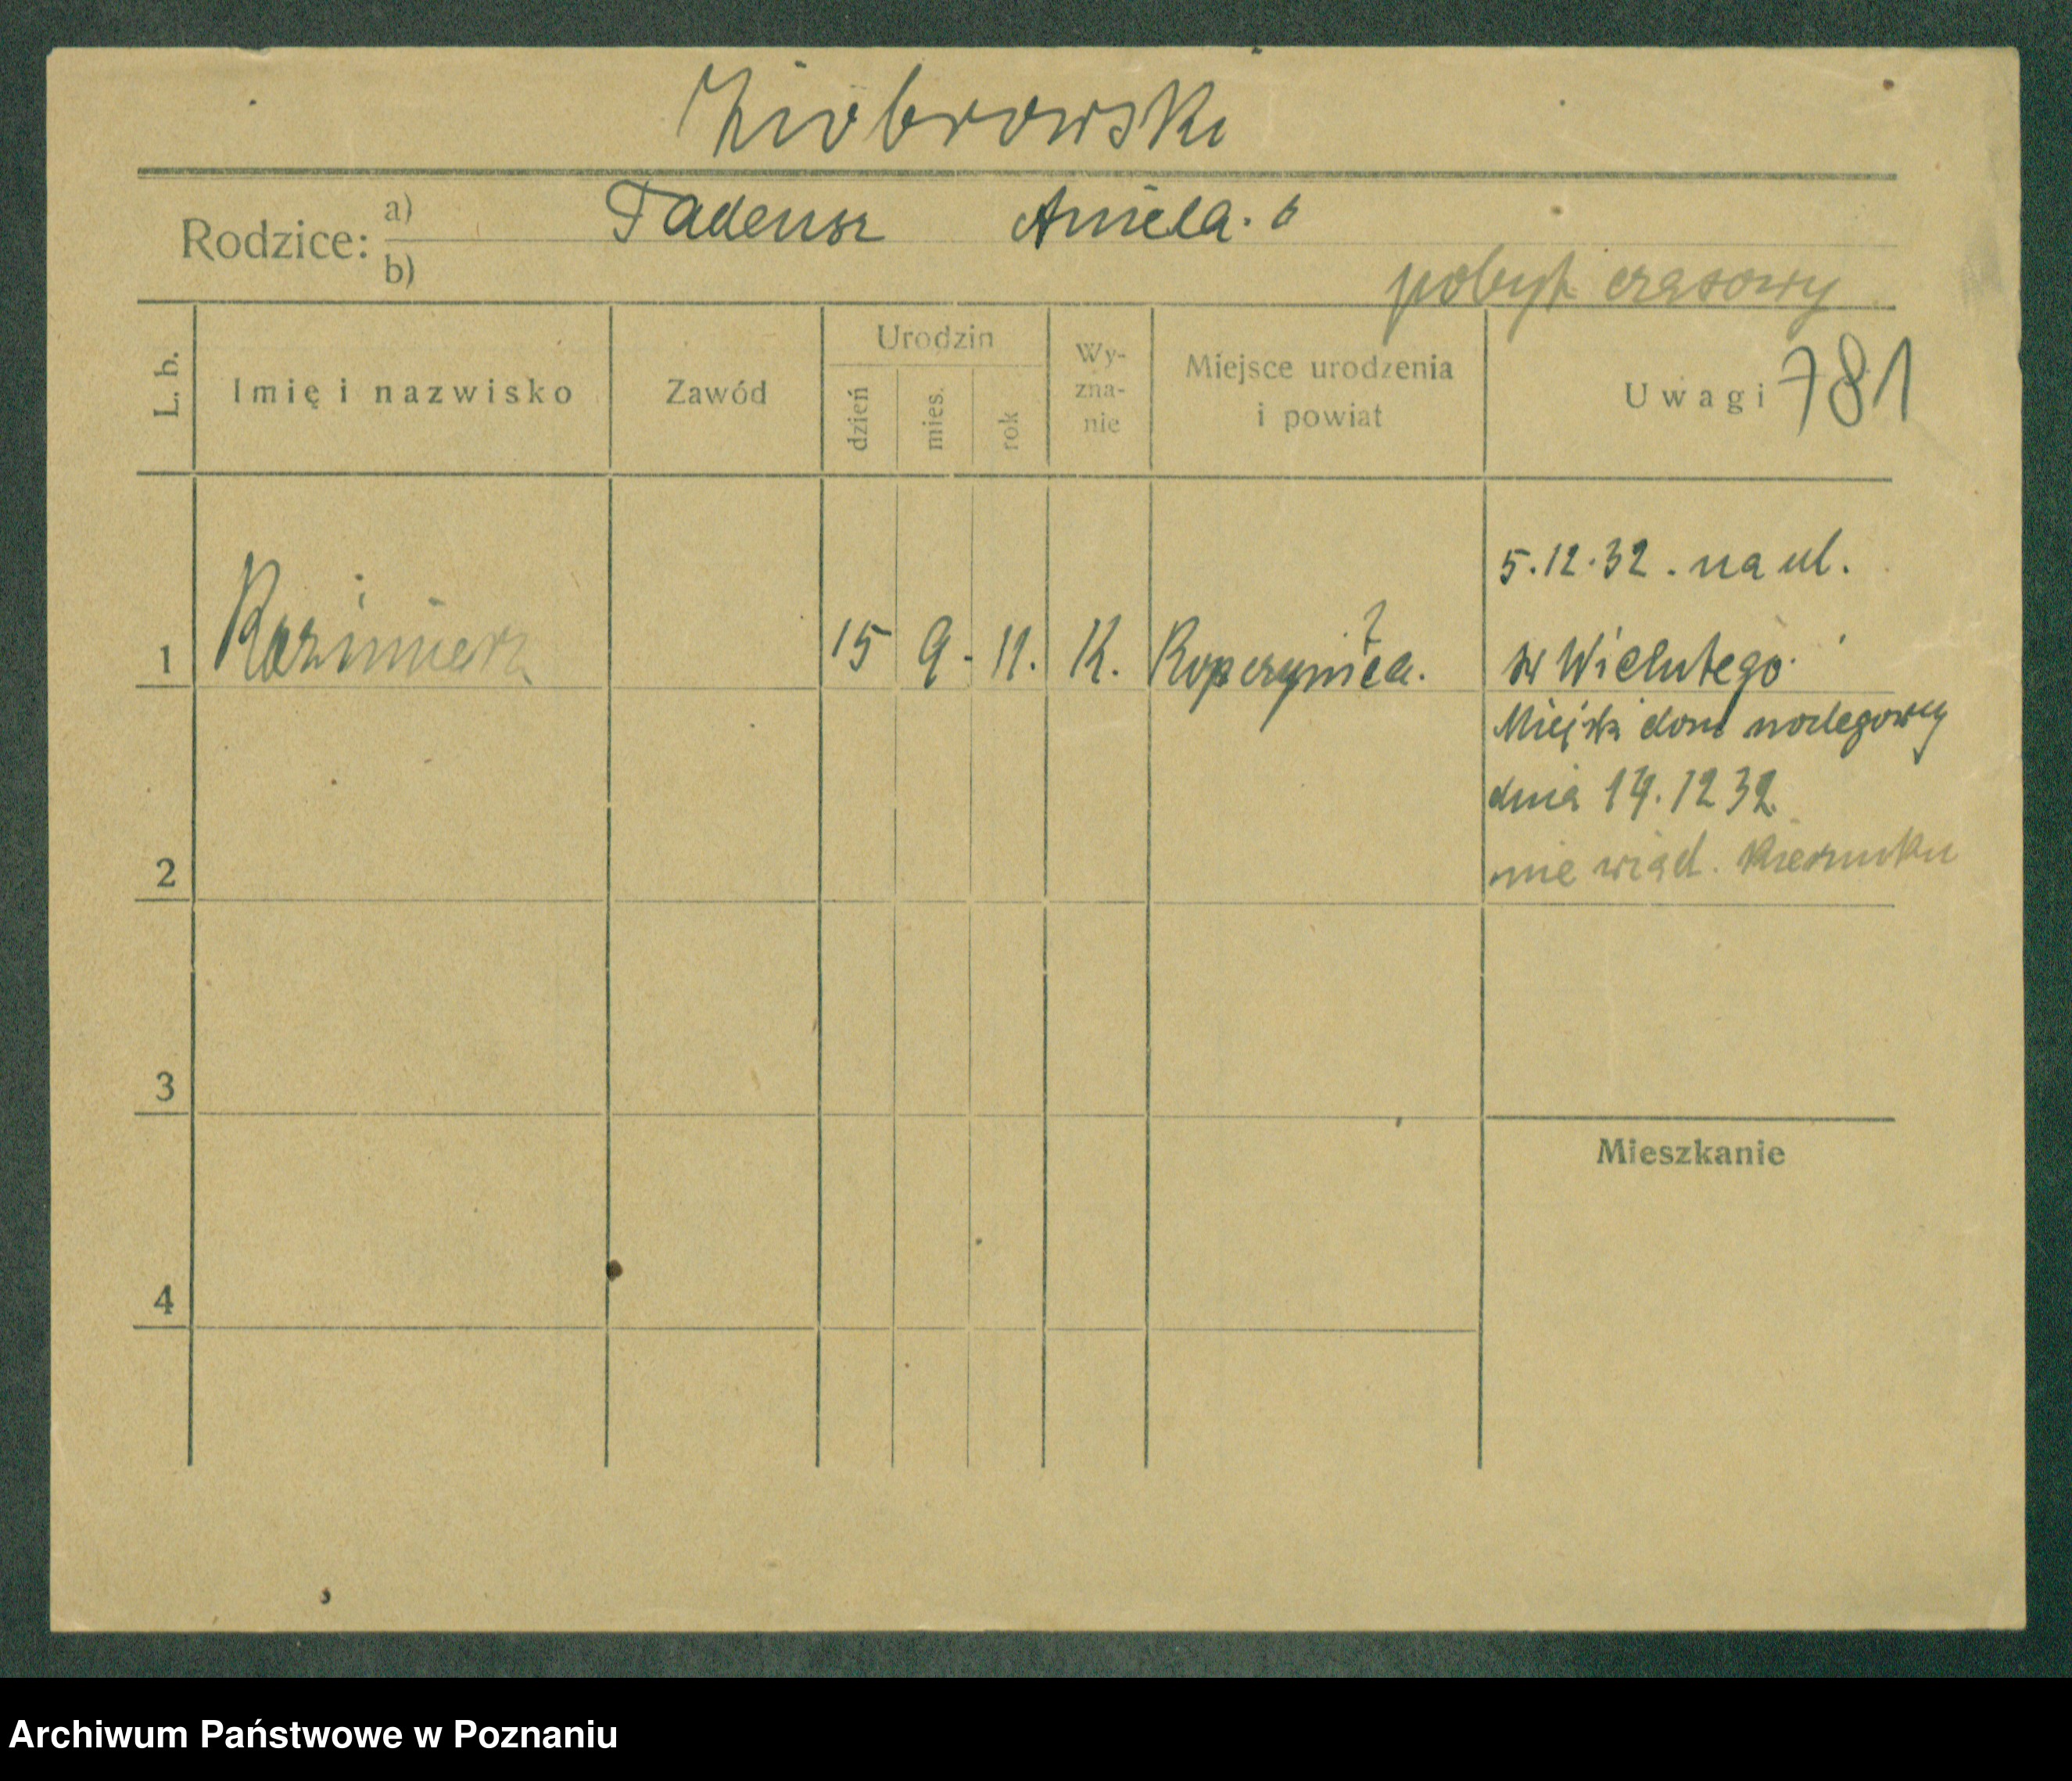 Ziobrowski
Rodzice: a) Tadeusz Aniela.
b)
pobyt czasowy
L. b.
Imię i nazwisko
Zawód
Urodzin
dzień
mies.
rok
Wy-
zna-
nie
Miejsce urodzenia
i powiat
Uwagi 781
5.12.32. na ul.
1 Kazimierz 15 9. 11. K.
Miejski dom noclegowy
dnia 12 32
nie wiad. kierunku
2
3
Mieszkanie
4
Archiwum Państwowe w Poznaniu